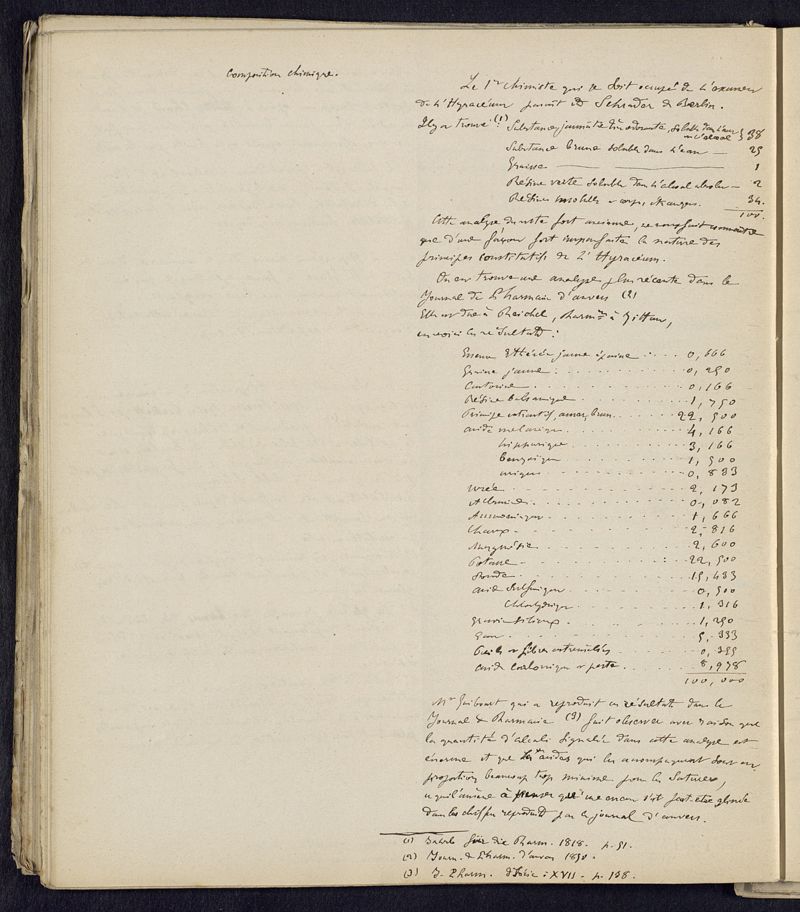 Composition chimique.
Le 1er chimiste qui se soit occupé de l'examen
de l'Hyraceum paraît être Schrader de Berlin.
Il y a trouvé : (1) Substance jaunâtre odorante, soluble dans l'eau
et l'alcool } 38
Substance brune soluble dans l'eau — 25
Graisse — 1
Résine verte soluble dans l'alcool absolu — 2
Résidus insolubles et corps étrangers. 34.
100.
Cette analyse du reste fort ancienne, ne nous fait connaître
que d'une façon fort imparfaite la nature des
principes constitutifs de l'Hyraceum.
On en trouve une analyse plus récente dans le
Journal de Pharmacie d'anvers (2)
Elle est due à Reichel, Pharm.en à
en voici les résultats :
Essence éthérée jaune .... 0,666
Graisse jaune . . . . 0,250
Castorine . . . . 0,166
Résine balsamique . . . . 1,750
Principe extractif, amer, brun . . . . 22,500
acide mélanique . . . . 4,166
hippurique . . . . 3,166
benzoïque . . . . 1,500
urique . . . . 0,833
urée . . . . 2,173
Albumine . . . . 0,082
Ammoniaque . . . . 1,666
Chaux . . . . 2,816
Magnésie . . . . 2,600
Potasse . . . . 22,500
Soude . . . . 15,483
acide sulfurique . . . . 0,500
Chlorhydrique . . . . 1,316
Gravier siliceux . . . . 1,250
Eau . . . . 5,333
Poils et fibres . . . . 0,355
acide carbonique et perte . . . . 8,978
100,000
Mr Guibourt qui a reproduit ces résultats dans le
Journal de Pharmacie (3) fait observer avec raison que
la quantité d'alcali signalée dans cette analyse est
énorme et que les acides qui les accompagnent sont en
proportion beaucoup trop minime pour les saturer,
ce qui l'amène à penser qu'une erreur s'est peut-être glissée
dans les chiffres reproduits par le journal d'anvers.
(1) für die Pharm. 1818. p. 51.
(2) Journ. de Pharm. d'anvers 1850.
(3) J. Pharm. 3e Série : XVII - p. 138.